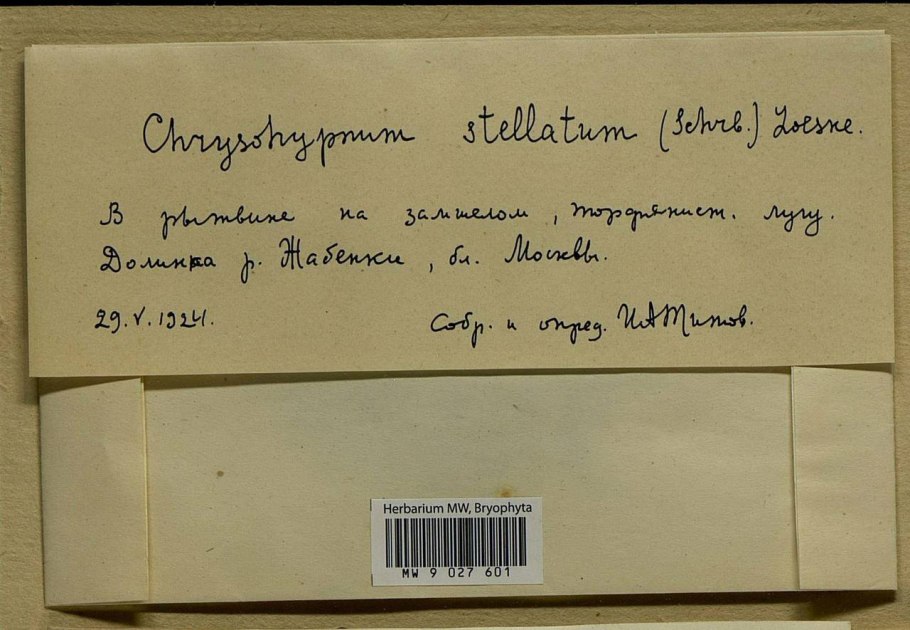 Chrysohypnum stellatum (Schrb.) Loeske.
В рытвине на замшелом, торфянист. лугу.
Долинка р. Жабенки, бл. Москвы.
29.V.1924.
Собр. и опред. И.А Титов.
Herbarium MW, Bryophyta
MW 9 027 601